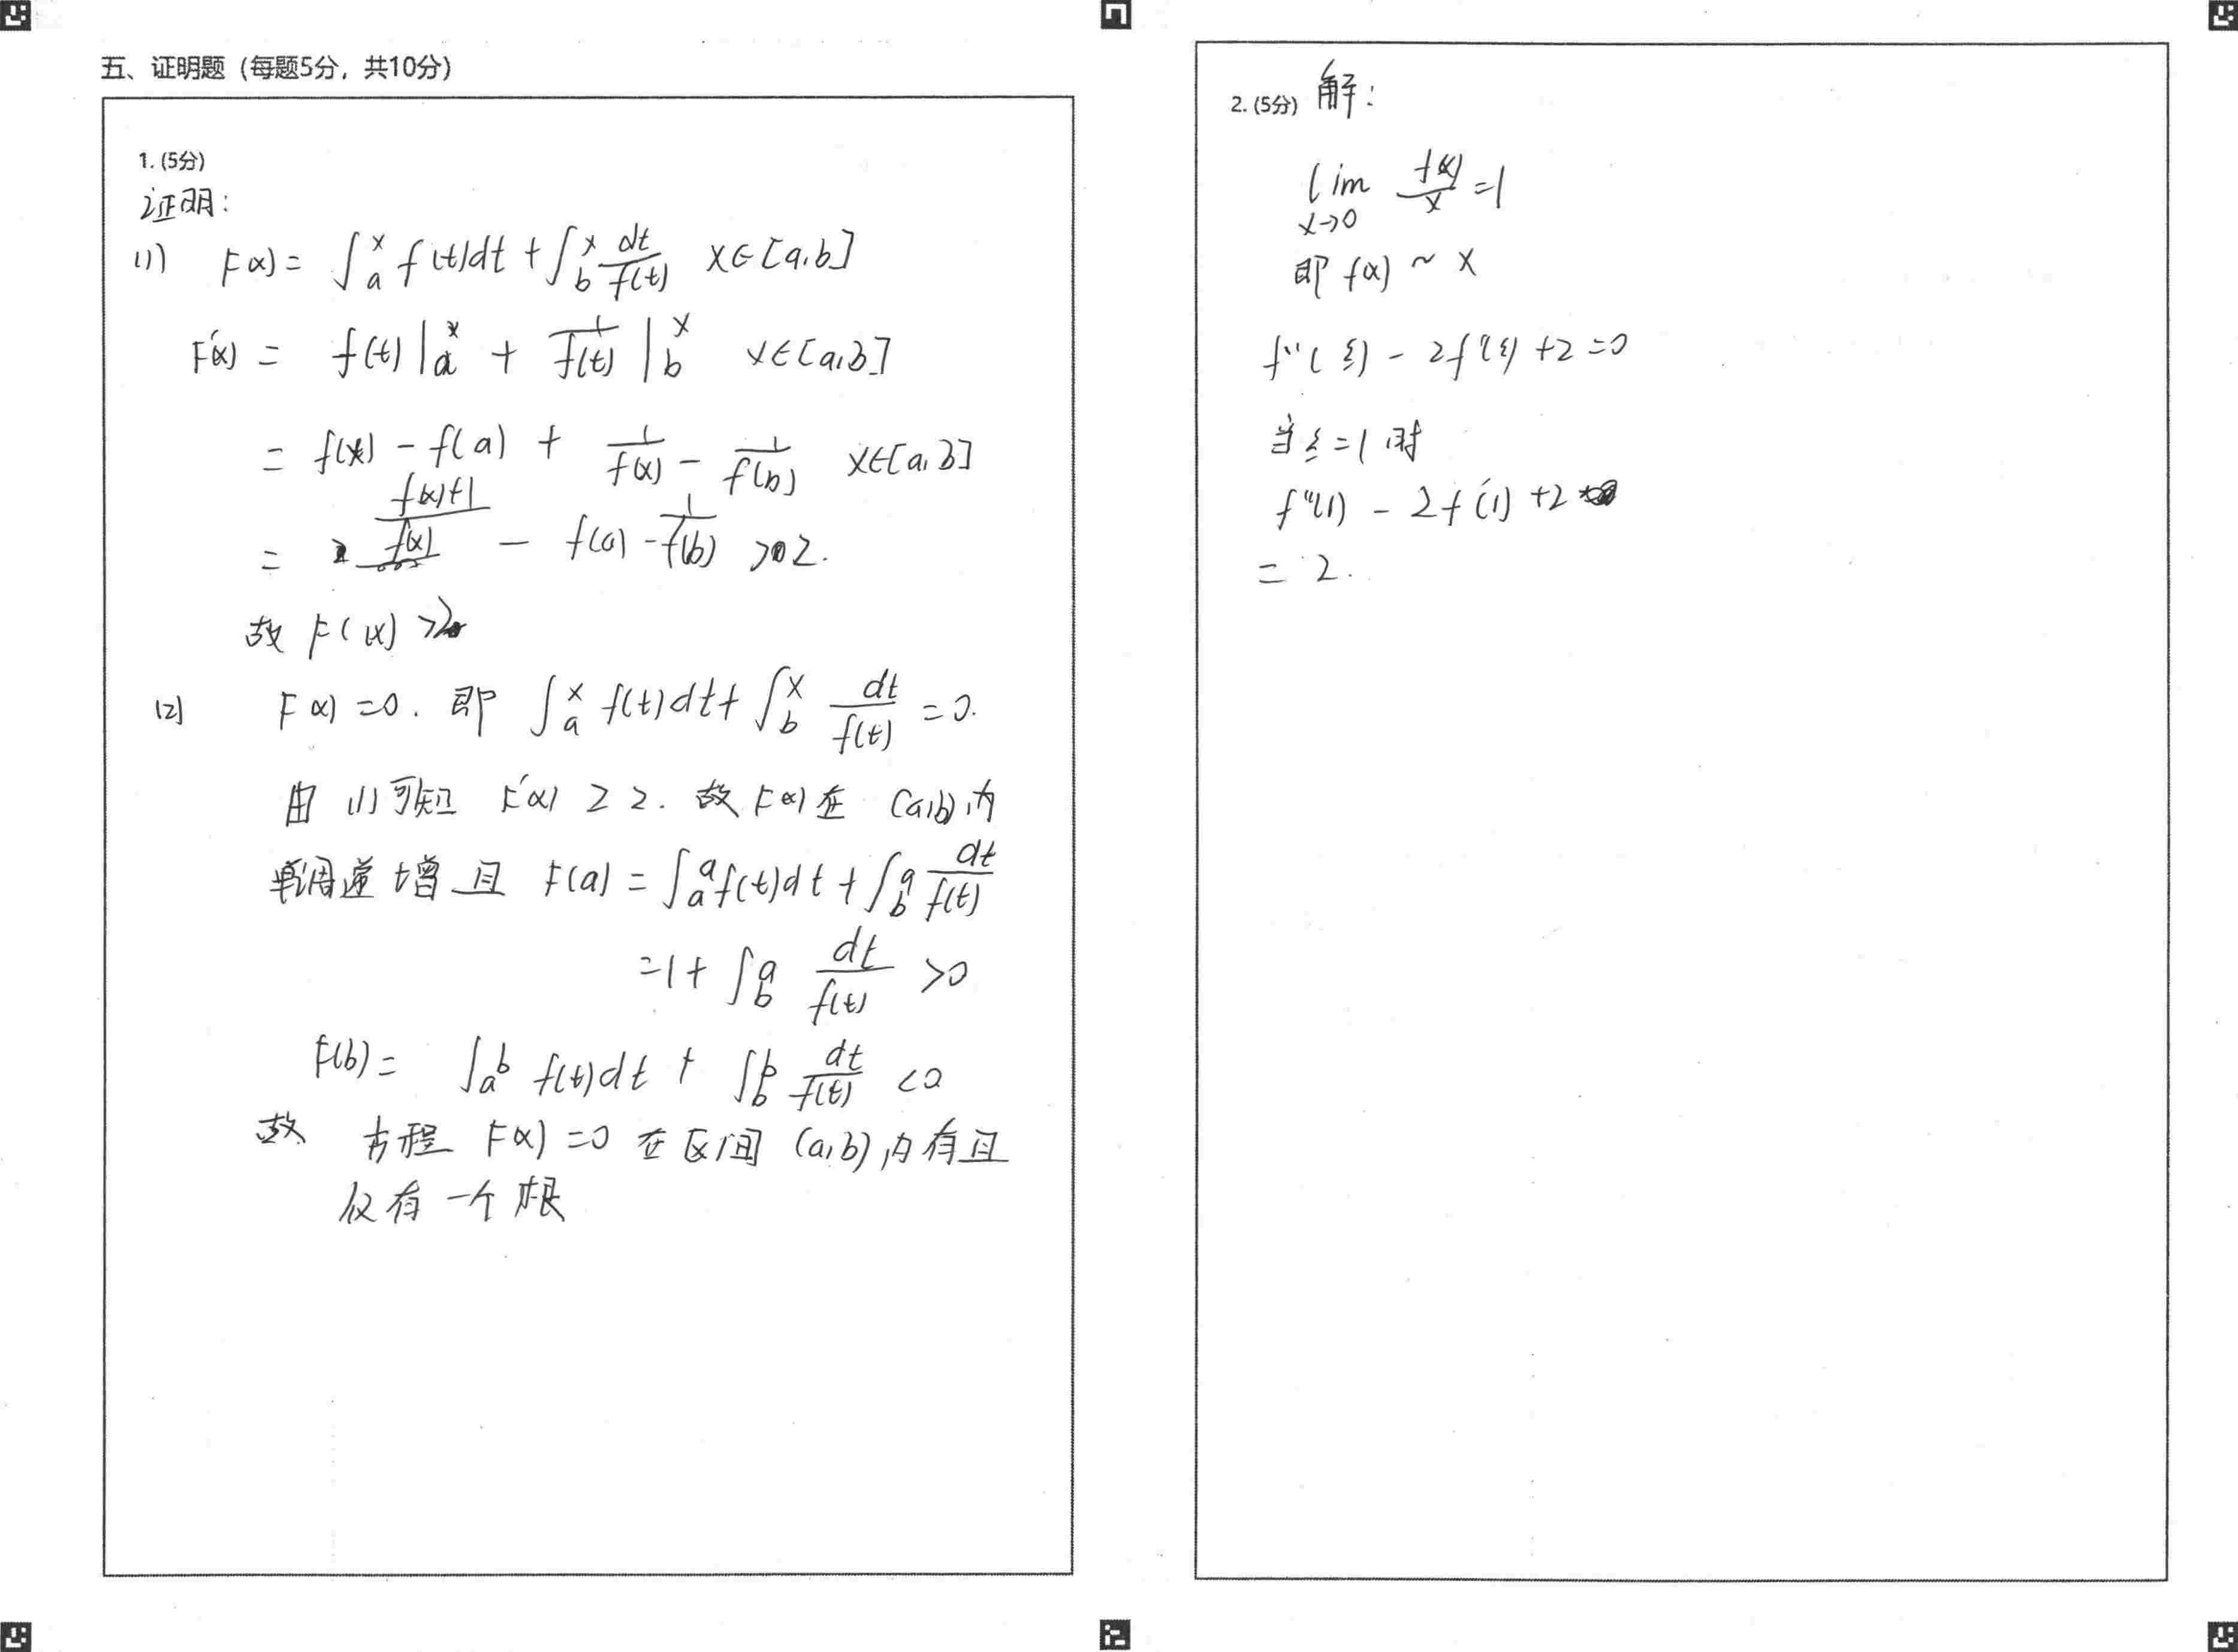 五、证明题（每题5分，共10分）
1. (5分)
证明：
(1) F(x) = ∫_a^x f(t)dt + ∫_b^x dt/f(t) x∈[a,b]
F'(x) = f(t)|_a^x + 1/f(t)|_b^x x∈[a,b]
= f(x) - f(a) + 1/f(x) - 1/f(b) x∈[a,b]
= (f(x)+1)/f(x) - f(a) - 1/f(b) ≥2.
故 F(x) ≥2
(2) F(x) =0. 即 ∫_a^x f(t)dt + ∫_b^x dt/f(t) =0.
由 (1)可知 F'(x) ≥ 2. 故 F(x) 在 (a,b)内
单调递增 且 F(a) = ∫_a^a f(t)dt + ∫_b^a dt/f(t)
=1+ ∫_b^a dt/f(t) >0
F(b) = ∫_a^b f(t)dt + ∫_b^b dt/f(t) <0
故 方程 F(x) =0 在 区间 (a,b)内有且
仅有一个根
2. (5分) 解：
lim_{x→0} f(x)/x =1
即 f(x) ~ x
f''(ξ) - 2f'(ξ) +2 =0
当ξ=1时
f''(1) - 2f'(1) +2
= 2.